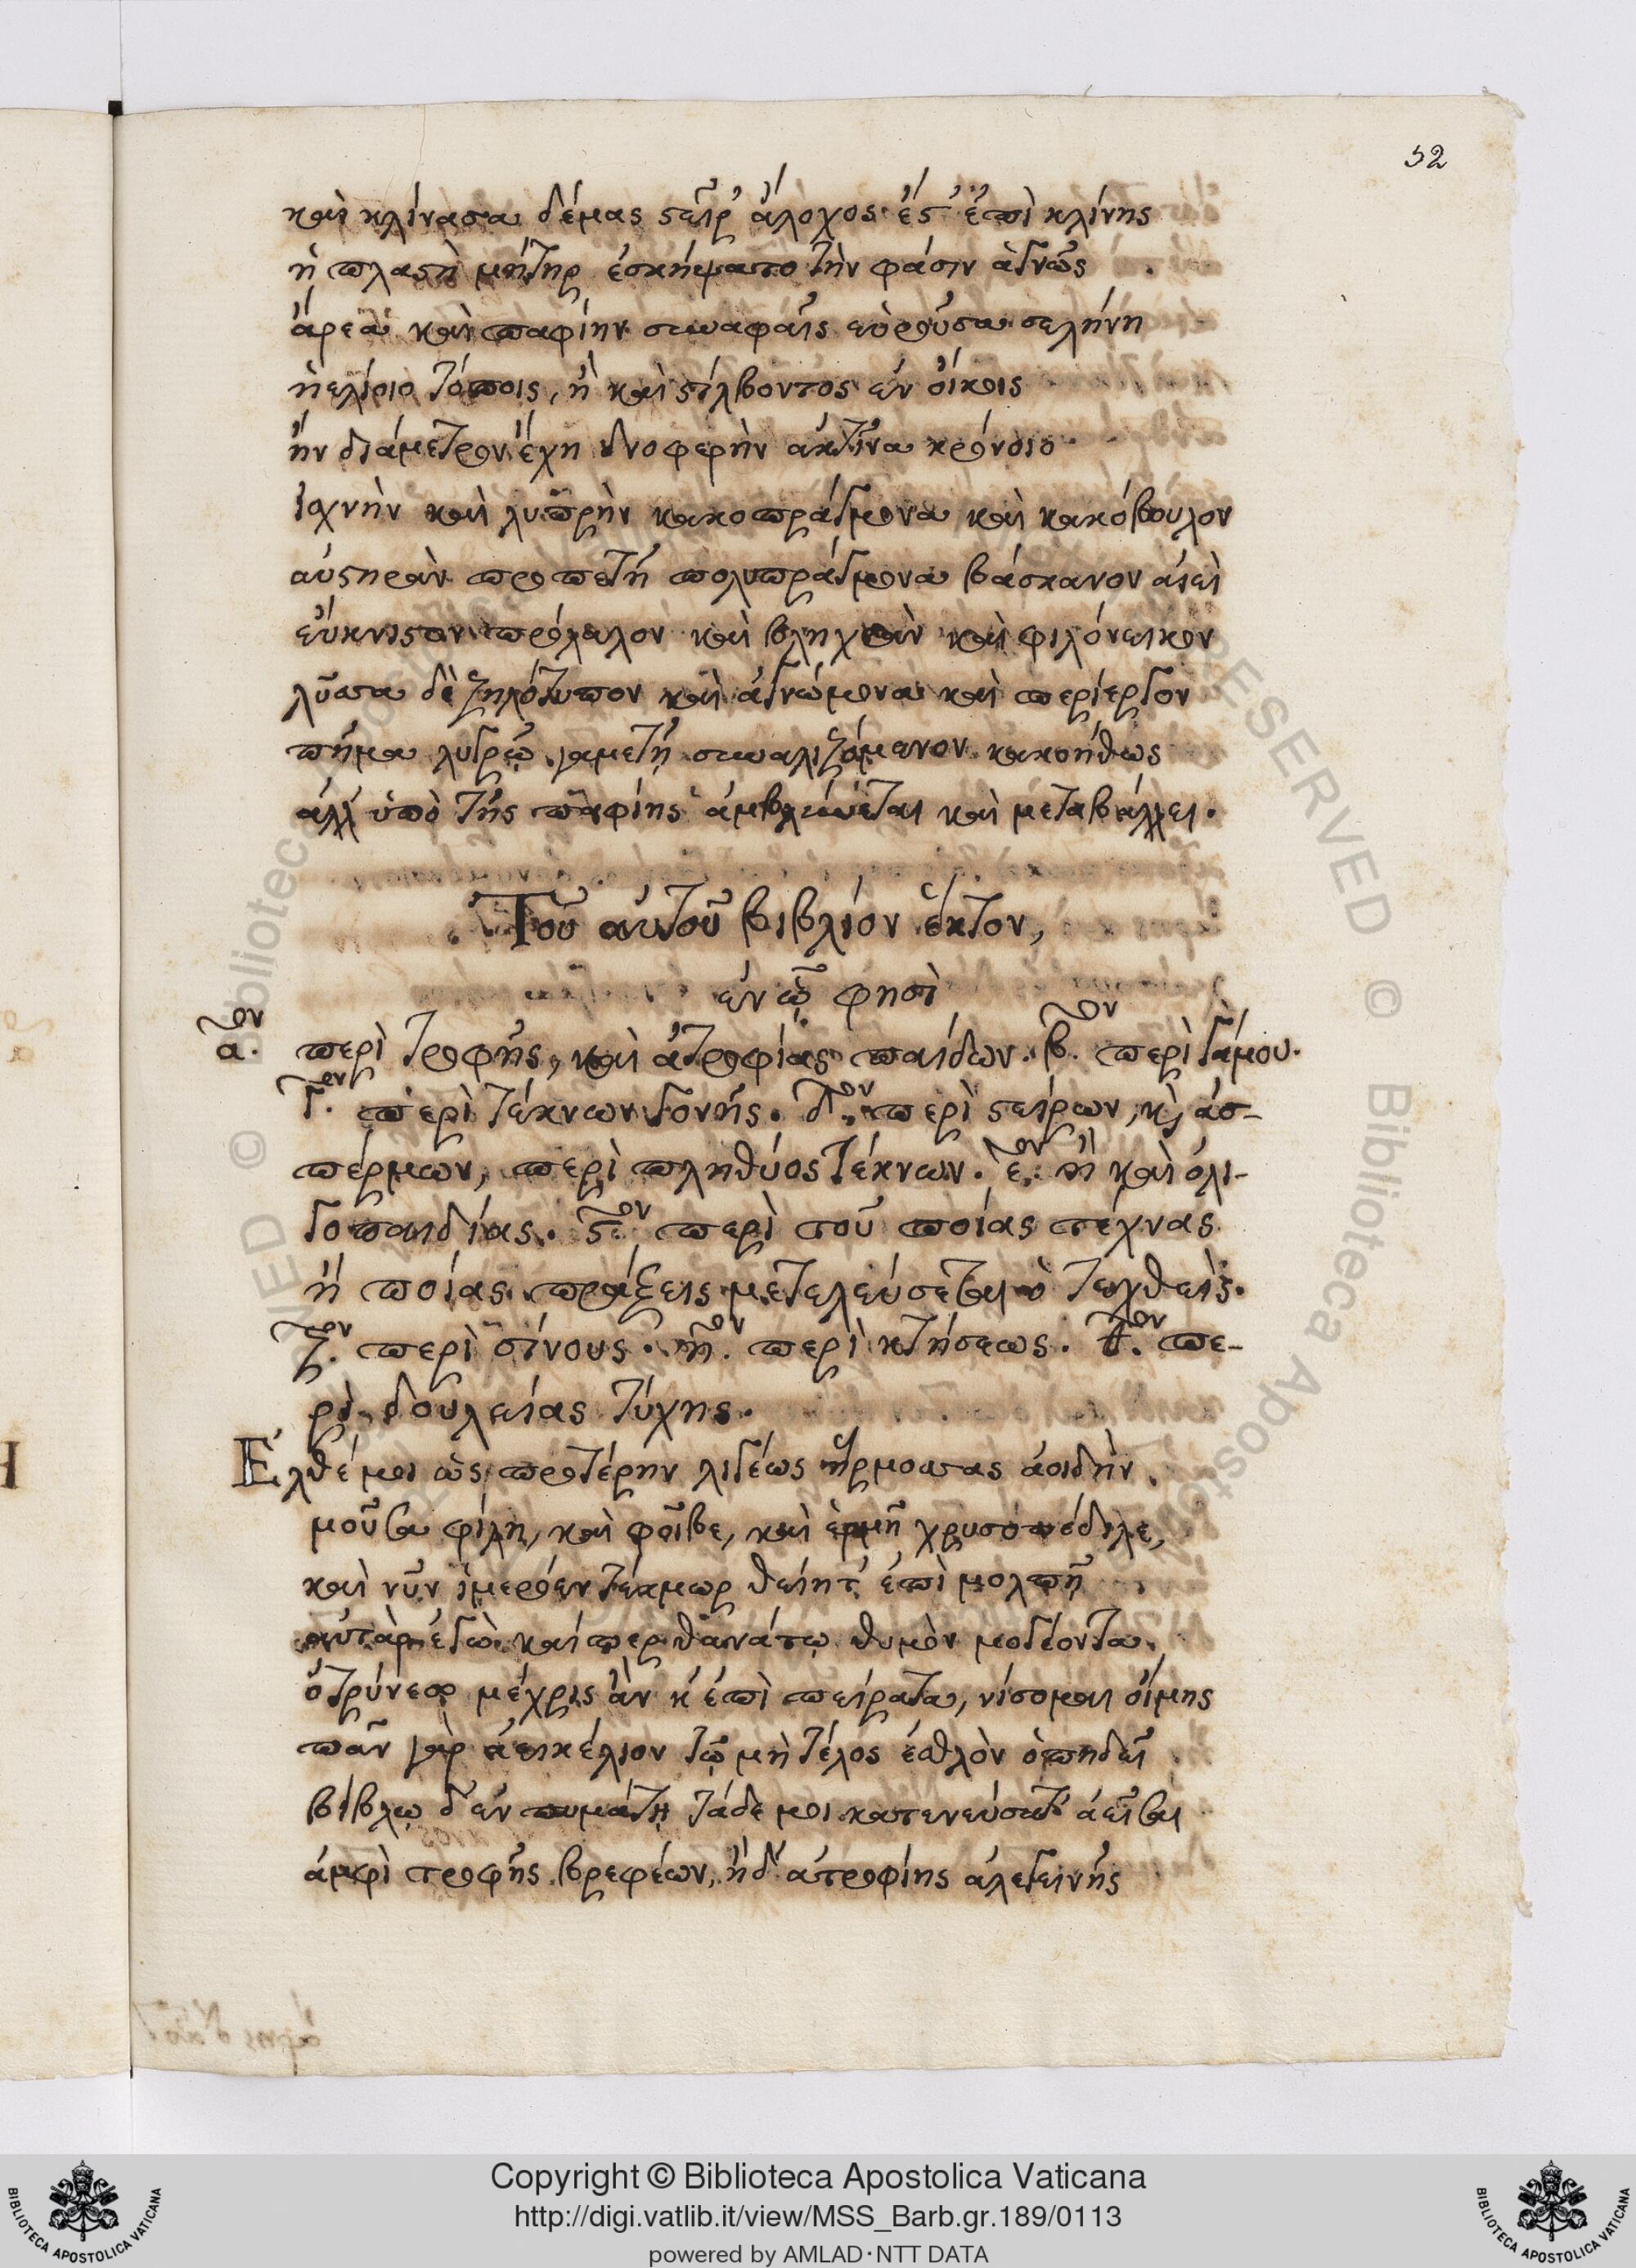 52
καὶ κλίνασα δέμας στεῖρ' ἄλοχος ἔς τ' ἐπὶ κλίνης
ἡ πλαστὴ μήτηρ ἐσκήψατο τὴν φάσιν ἁγνῶς
ἄρεα καὶ παφίην συναφαῖς εὑροῦσα σελήνη
ἠελίοιο τόποις, ἢ καὶ στίλβοντος ἐν οἴκοις
ἢν διάμετρον ἔχη δνοφερὴν ἀκτῖνα κρόνοιο
ἰχνὴν καὶ λυπρὴν κακοπράγμονα καὶ κακόβουλον
αὐστηρὰν προπετῆ πολυπράγμονα βάσκανον αἰεὶ
εὔκνιστον πρόλαλον καὶ βληχρὰν καὶ φιλόνεικον
λῦσσα δὲ ζηλότυπον καὶ ἀγνώμονα καὶ περίεργον
πῆμα λυγρῷ γαμετῇ συναλιζόμενον κακοήθως
ἀλλ' ὑπὸ τῆς παφίης ἀμβλύνεται καὶ μεταβάλλει.
Τοῦ αὐτοῦ βιβλίον ἕκτον,
ἐν ᾧ φησὶ
α.ον περὶ τροφῆς, καὶ ἀτροφίας παίδων. β.ον περὶ γάμου.
γ.ον περὶ τέκνων γονῆς. δ.ον περὶ στείρων, κ̀ ἀσ-
πέρμων, περὶ πληθύος τέκνων. ε.ον ἢ καὶ ὀλι-
γοπαιδίας. ϛ.ον περὶ τοῦ ποίας τέχνας
ἢ ποίας πράξεις μετελεύσεται ὁ τεχθείς.
ζ.ον περὶ σίνους. η.ον περὶ κτήσεως. θ.ον πε-
ρὶ δουλείας τύχης.
Ἐλθέ μοι ὡς προτέρην λιγέως ἥρμοσας ἀοιδὴν
μοῦσα φίλη, καὶ φοῖβε, καὶ ἑρμῆ χρυσοπέδιλε,
καὶ νῦν ἱμερόεν τέκμωρ θείητ' ἐπὶ μολπῇ
αὐτὰρ ἐγὼ καίπερ θανάτῳ θυμὸν μογέοντα
ὀτρύνεον μέχρις ἂν κ' ἐπὶ πείρατα, νίσομαι οἴμης
πᾶν γὰρ ἀεικέλιον τῷ μὴ τέλος ἐσθλὸν ὀπηδεῖ
βίβλῳ δ' ἐν πυμάτῃ τάδε μοι κατενεύσατ' ἀεῖσαι
ἀμφὶ τροφῆς βρεφέων, ἠδ' ἀτροφίης ἀλεγεινῆς
Copyright © Biblioteca Apostolica Vaticana
http://digi.vatlib.it/view/MSS_Barb.gr.189/0113
powered by AMLAD·NTT DATA
BIBLIOTECA APOSTOLICA VATICANA
BIBLIOTECA APOSTOLICA VATICANA